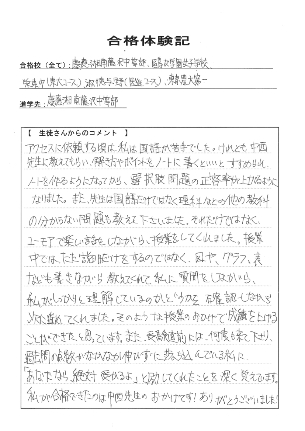 合格体験記
合格校（全て）：慶應湘南藤沢中等部、
進学先：慶應湘南藤沢中等部
【 生徒さんからのコメント 】
アクセスに依頼する頃は、私は国語が苦手でした。けれども中西
先生に教えてもらい、解き方やポイントをノートに書くといいとすすめられ、
ノートを作るようになってから、選択肢問題の正答率が上がるように
なりました。また、先生は国語だけではなく理科などの他の教科
の分からない問題も教えて下さいました。それだけではなく、
ユーモアで楽しい話をしながら、授業をしてくれました。授業
中では、ただ説明だけをするのではなく、図や、グラフ、表
なども書きながら教えてくれて、私に質問をしながら、
私がしっかりと理解しているのかしつかを確認しながら
進めてくれました。そのような授業のおかげで成績を上げる
ことができたと思っています。また、受験直前には、何度も来て下さり、
過去問の点数がなかなか伸びずに落ち込んでいる私に
「あなたなら絶対受かるよ」と励ましてくれたことを深く覚えてます。
私が合格できたのは中西先生のおかげです！ありがとうございました！